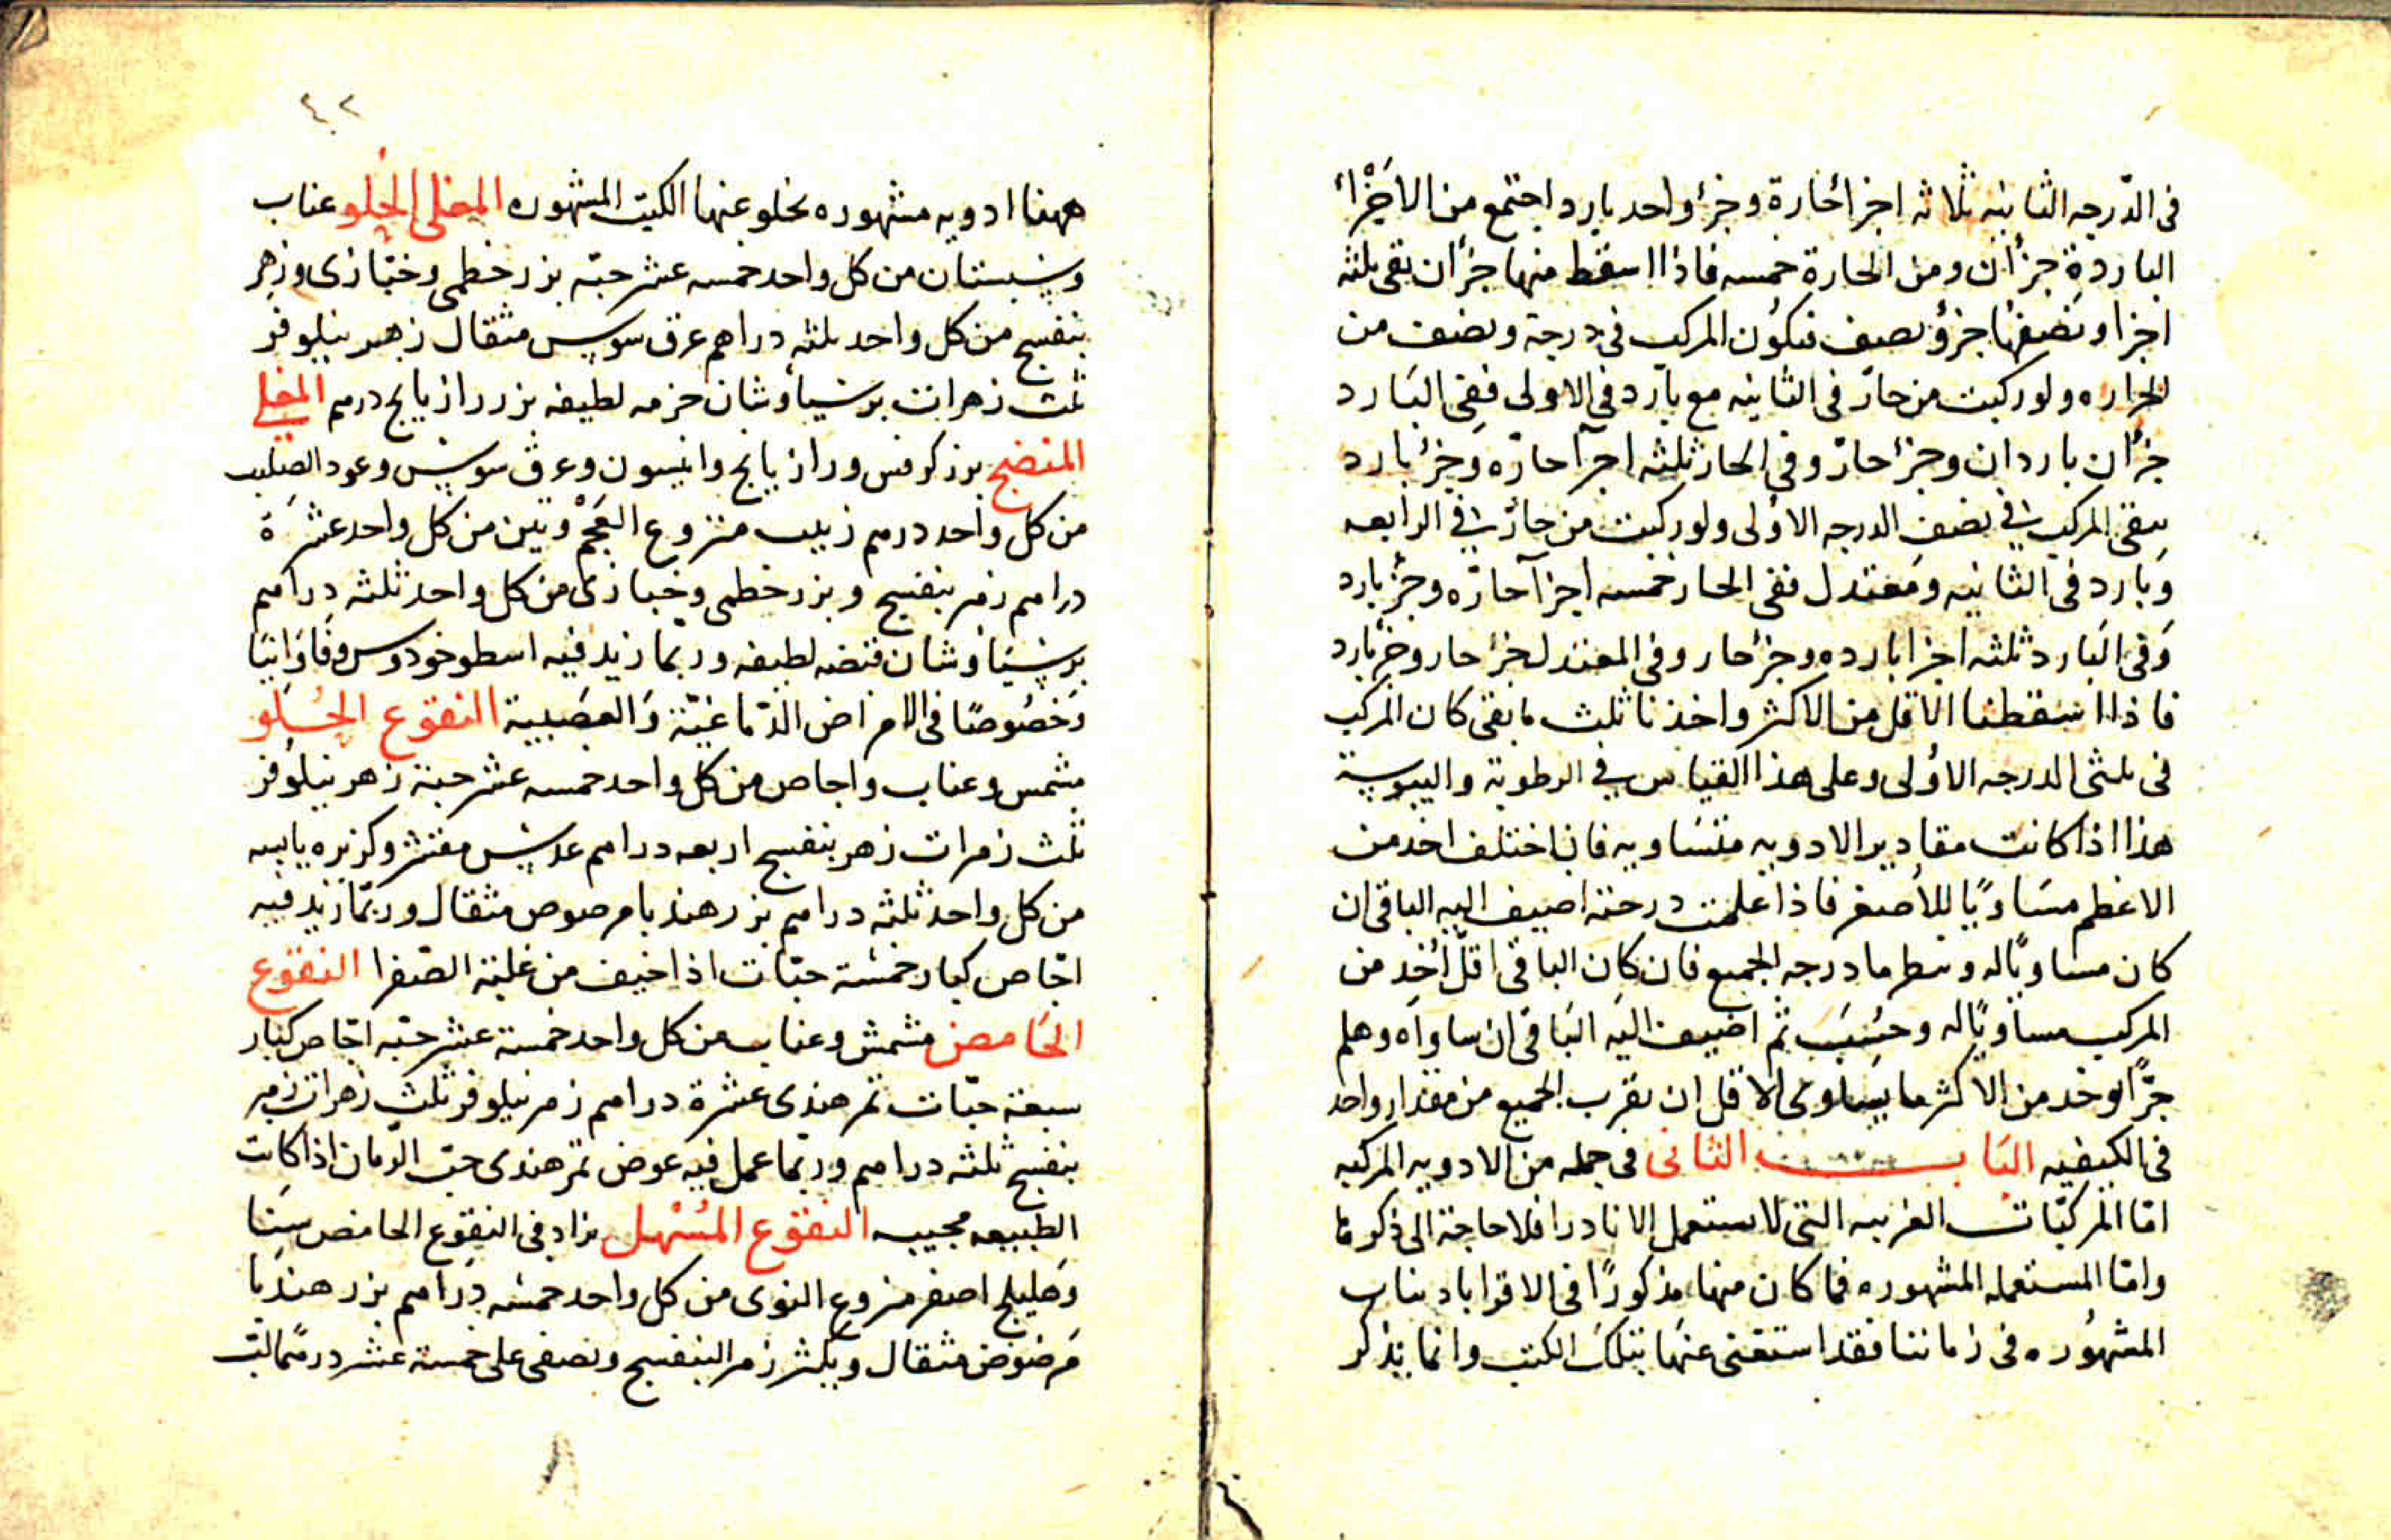 فى الدّرجه الثانيه ثلاثه اجزا حارة وجزؤ واحد بارد اجتمع من الاجزاء
الباردة جزأن ومن الحارة خمسه فاذا اسقط منها جزأن بقى ثلثه
اجزا ونصفها جزؤ نصف فيكون المركب فى درجة ونصف من
الحراره ولو ركبت من حارّ فى الثانيه مع بارد فى الاولى ففى البارد
جزأن باردان وجزء حارّ وفى الحار ثلثه اجزآ حارّه وجزء بارد
يبقى المركب فى نصف الدرجه الاولى ولو ركبت من حارّ فى الرابعه
وبارد فى الثانيه ومعتدل ففى الحار خمسه اجزآ حارّه وجزء بارد
وفى البارد ثلثه اجزا بارده وجزء حار وفى المعتدل جزء حار وجزء بارد
فاذا اسقطنا الاقل من الاكثر واخذنا ثلث ما بقى كان المركب
فى ثلثى الدرجه الاولى وعلى هذا القياس فى الرطوبة واليبوسة
هذا اذا كانت مقادير الادويه متساويه فان اختلف اخذ من
الاعظم مساويًا للأصغر فاذا علمت درجته اضيف اليه الباقى ان
كان مساويًا له وسط ما درجه الجميع فان كان الباقى اقلّ اُخِذ من
المركب مساويًا له وحُسِب ثم اضيف اليه الباقى ان ساواه وهلم
جرًّا وخذ من الاكثر ما يساوى الاقل ان يقرب الجميع من مقدار واحد
فى الكيفيه البَاب الثانى فى جمله من الادويه المركبه
امّا المركّبات الغريبه التى لا يستعمل الا نادرا فلا حاجة الى ذكرها
وامّا المستعمله المشهوره فما كان منها مذكورًا فى الاقراباد ينات
المشهُوره فى زماننا فقد استغنى عنها بتلك الكتب وانما يذكر
٤٠٢
ههنا ادويه مشهوره يخلو عنها الكتب المشهوره المغلى الحُلو عناب
وسبستان من كل واحد خمسه عشر حبّه بزر خطمى وخبّازى وزهر
بنفسج من كل واحد ثلثه دراهم عرق سوس مثقال زهر نيلوفر
ثلث زهرات برسياوشان حزمه لطيفه بزر رازيانج درهم المغلى
المنضج بزر كرفس ورازيانج وانيسون وعرق سوس وعود الصليب
من كل واحد درهم زبيب منزوع العَجَمْ وتين من كل واحد عشرة
دراهم زهر بنفسج وبزر خطمى وخبازى من كل واحد ثلثه دراهم
برسياوشان قبضه لطيفه وربّما زيد فيه اسطوخودوس وفاوانيا
وخصُوصًا فى الامراض الدّماغيّة والعصَبية النقوع الحُلو
مشمس وعناب واجاص من كل واحد خمسه عشر حبة زهر نيلوفر
ثلث زهرات زهر بنفسج اربعه دراهم عدس مقشر وكزبره يابسه
من كل واحد ثلثه دراهم بزر هندبا مرصوص مثقال وربّما زيد فيه
اجّاص كبار خمسة حبّات اذا خيف من غلبة الصّفرا النقوع
الحَامض مشمش وعناب من كل واحد خمسة عشر حبّه اجّاص كبار
سبعة حبّات تمر هندى عشرة دراهم زهر نيلوفر ثلث زهرات زهر
بنفسج ثلثه دراهم وربّما عمل فيه عوض تمر هندى حبّ الرّمان اذا كانت
الطبيعه مجيبه النقوع المُسْهل يزاد فى النقوع الحامض سَنا
وهليلج اصفر منزوع النوى من كل واحد خمسه دراهم بزر هندبا
مرضوض مثقال ويكثر زهر البنفسج ويصفى على خمسة عشر درهمًا لبّ